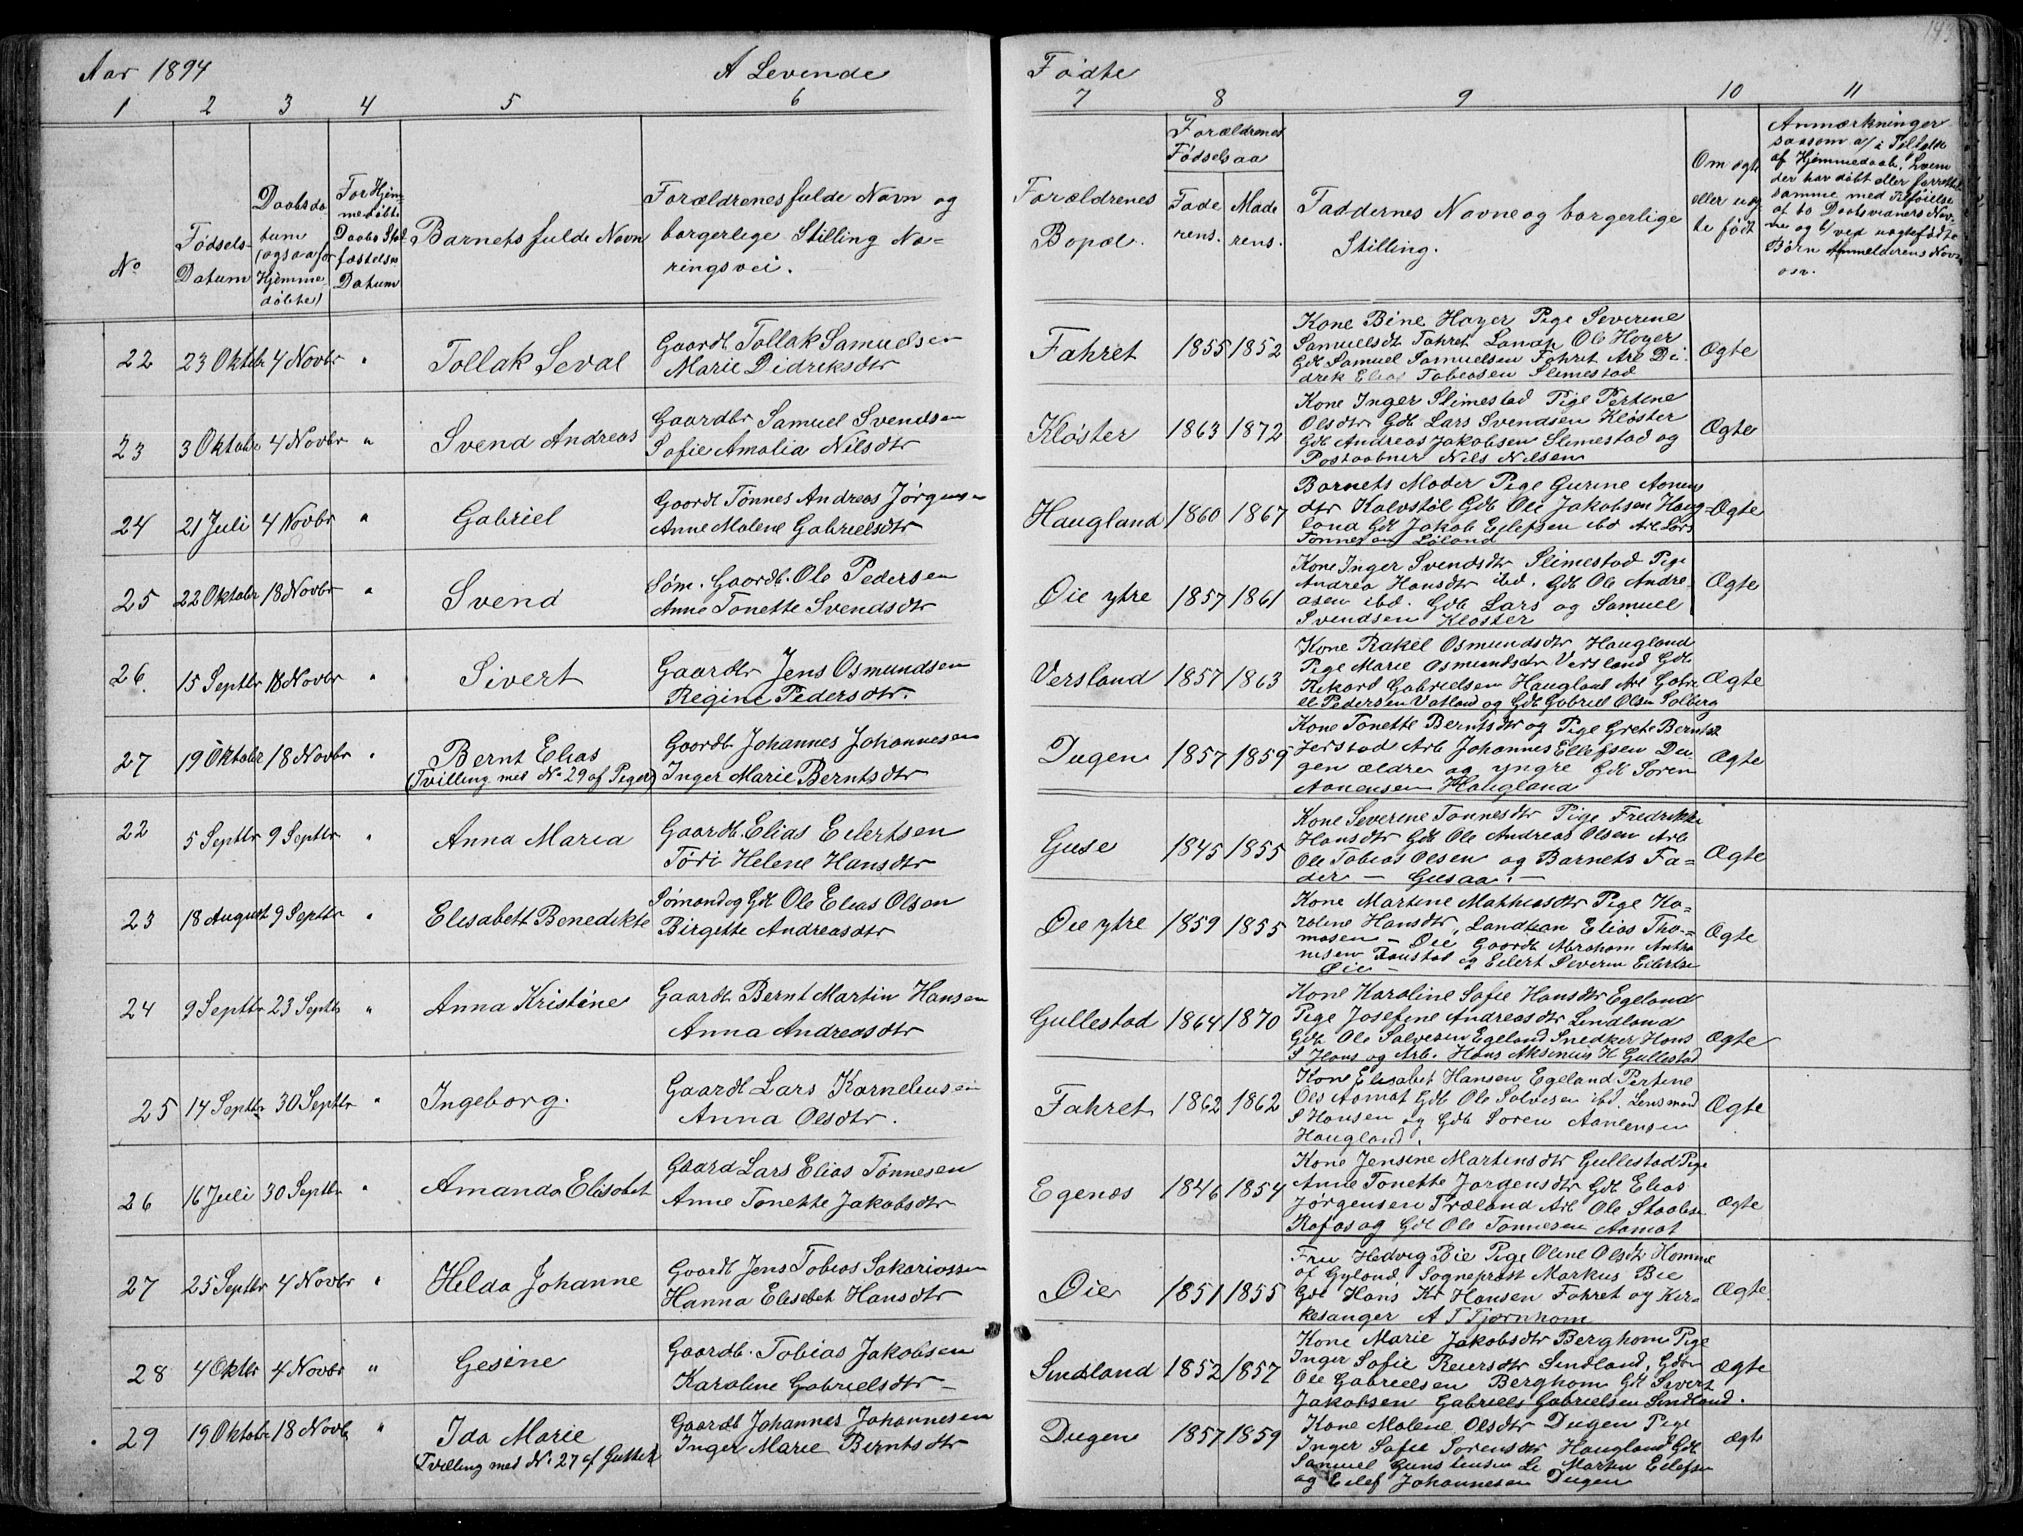 143
Aar 1894 A Levende Fødte
1 2 3 4 5 6 7 8 9 10 11
No
Fødsels-
Datum
Daabsda
tum
(ogsaa for
Hjemme
døbte)
For Hjem
medøbte
Daabs Stad
fæstelses
Datum
Barnets fulde Navn
Forældrenes fulde Navn og
borgerlige Stilling Næ-
ringsvei.
Forældrenes
Bopæl.
Forældrenes
Fødselsaa
Fade
rens.
Mode
rens.
Faddernes Navne og borgerlige
Stilling.
Om ægte
eller uæg
te født
Anmærkninger
saasom a/ i Tilfælde
af Hjemmedaab, hvem
der har døbt eller forrettet
samme med Tilføielse
af to Daabsvidners Nav-
ne og b/ ved uægtefødte
Børn Anmelderens Navn
osv.
22 23 Oktbr 4 Novbr " Tollak Seval
Gaardb Tollak Samuelsen
Marie Didriksdtr
Fahret 1855 1852
Kone Bine Høyer Pige Severine
Samuelsdt Fahret Landh Ole Høyer
Gdb Samuel Samuelsen Fahret Arb Di
drek Elias Tobiasen Slimestad
Ægte
23 3 Oktobr 4 Novbr " Svend Andreas
Gaardbr Samuel Svendsen
Sofie Amalia Nilsdtr
Kløster 1863 1872
Kone Inger Slimestad Pige Pertine
Olsdtr Gdb Lars Svendsen Kløster
Gdb Andreas Jakobsen Slimestad og
Postaabner Nils Nilsen
Ægte
24 21 Juli 4 Novbr " Gabriel
Gaardb Tønnes Andreas Jørgensen
Anne Malene Gabrielsdtr
Haugland 1860 1867
Barnets Moder Pige Gurine Aanens
dtr Kalvstøl Gdb Ole Jakobsen Haug
land Gdb Jakob Eilefsen ibd Arb Lars
Tønnesen Løland
Ægte
25 22 Oktobr 18 Novbr " Svend
Søm. Gaardb. Ole Pedersen
Anne Tonette Svendsdtr
Øie ytre 1857 1861
Kone Inger Svendsdtr Slimestad Pige
Andrea Hansdtr ibd. Gdb Ole Andre-
asen ibd. Gdb Lars og Samuel
Svendsen Kløster
Ægte
26 15 Septbr 18 Novbr " Sivert
Gaardbr Jens Osmundsen
Regine Pedersdtr.
Versland 1857 1863
Kone Rakel Osmundsdtr Haugland
Pige Marie Osmundsdtr Versland Gdb
Rikard Gabrielsen Haugland Arb Gabri
el Pedersen Vatland og Gdb Gabriel Olsen Solberg
Ægte
27 19 Oktobr 18 Novbr " Bernt Elias
(Tvilling med No 29 af Piger)
Gaardb Johannes Johannesen
Inger Marie Berntsdtr
Dugen 1857 1859
Kone Tonette Berntsdtr og Pige Grete Berntsdt
Jerstad Arb Johannes Ellefsen Du
gen ældre og yngre Gdb Søren
Aanensen Haugland
Ægte
22 5 Septbr 9 Septbr " Anna Maria
Gaardb. Elias Eilertsen
Tøri Helene Hansdtr
Guse 1845 1855
Kone Severine Tønnesdtr Pige Fredrikke
Hansdtr Gdb Ole Andreas Olsen Arb
Ole Tobias Olsen og Barnets Fa=
der — Gusaa. —
Ægte
23 18 August 9 Septbr " Elisabett Benedikte
Sømand og Gdb Ole Elias Olsen
Birgitte Andreasdtr
Øie ytre 1859 1855
Kone Martine Mathiasdtr Pige Ka-
roline Hansdtr, Landhan Elias Tho-
masen — Øie Gaardb Abraham Antho
nisen Raustad og Eilert Severin Eilertsen
Øie —
Ægte
24 9 Septbr 23 Septbr " Anna Kristine
Gaardb Bernt Martin Hansen
Anna Andreasdtr
Gullestad 1864 1870
Kone Karoline Sofie Hansdtr Egeland
Pige Josefine Andreasdtr Lindland
Gdb Ole Salvesen Egeland Snedker Hans
S Hans og Arb. Hans Aksenius H Gullestad
Ægte
25 14 Septbr 30 Septbr " Ingeborg.
Gaardb Lars Korneliusen
Anna Olsdtr.
Fahret 1862 1862
Kone Elisabet Hansen Egeland Pertine
Ols Aamot Gdb Ole Salvesen ibd. Lensmand
S Hansen og Gdb Søren Aanensen
Haugland.
Ægte
26 16 Juli 30 Septbr " Amanda Elisabet
Gaard Lars Elias Tønnesen
Anne Tonette Jakobsdtr
Egenæs 1846 1854
Kone Jensine Martinsdtr Gullestad Pige
Anne Tonette Jørgensdtr Gdb Elias
Jørgensen Træland Arb Ole Staalese
Rafos og Gdb Ole Tønnesen Aamot
Ægte
27 25 Septbr 4 Novbr " Helda Johanne
Gaardb Jens Tobias Sakariassen
Hanna Elisabet Hansdtr
Øie 1851 1855
Fru Hedvig Bie Pige Oline Olsdtr Homme
af Gyland, Sogneprest Markus Bie
Gdb Hans Kr Hansen Fahret og Kir-
kesanger A T Tjørnhom
Ægte.
28 4 Oktbr 4 Novbr " Gesine
Gaardb. Tobias Jakobsen
Karoline Gabrielsdtr —
Sindland 1852 1857
Kone Marie Jakobsdtr Berghom Pige
Inger Sofie Reiersdtr Sindland, Gdbr
Ole Gabrielsen Berghom Gdb Sivert
Jakobsen Gabriels Gabrielsen Sindland.
Ægte
29 19 Oktobr 18 Novb " Ida Marie
(Tvilling med No 27 af Gutter)
Gaardb Johannes Johannesen
Inger Marie Berntsdtr
Dugen 1857 1859
Kone Malene Olsdtr Dugen Pige
Inger Sofie Sørensdtr Haugland Gdb
Samuel Martin Eilefsen
og Eilef Johannesen Dugen
ægte